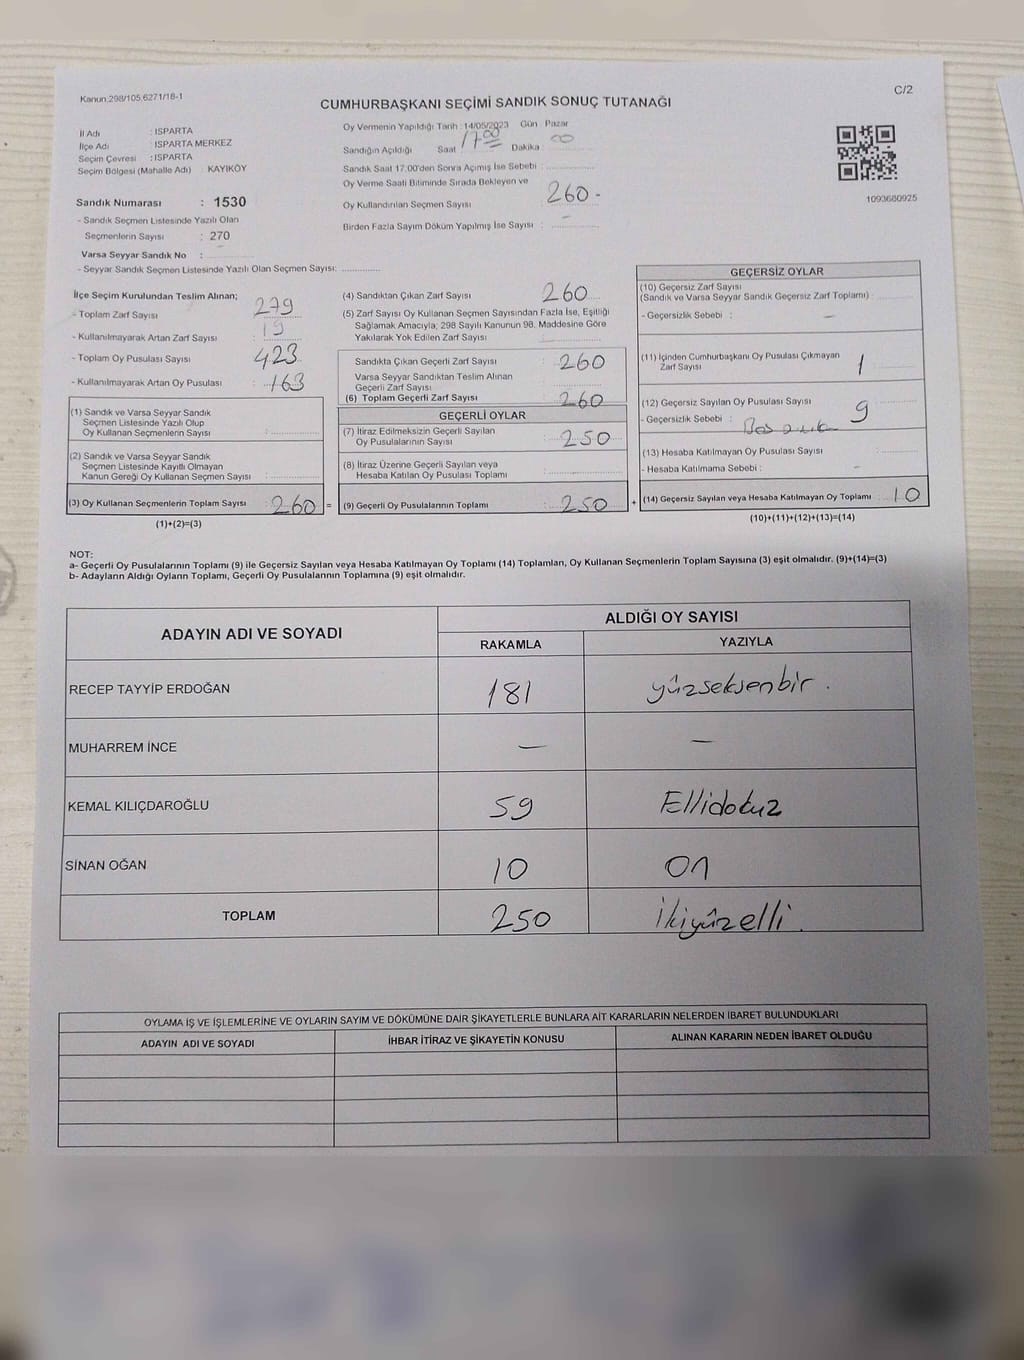 Kanun:298/105,6271/18-1
C/2
CUMHURBAŞKANI SEÇİMİ SANDIK SONUÇ TUTANAĞI
İl Adı : ISPARTA
İlçe Adı : ISPARTA MERKEZ
Seçim Çevresi : ISPARTA
Seçim Bölgesi (Mahalle Adı) : KAYIKÖY
Sandık Numarası : 1530
- Sandık Seçmen Listesinde Yazılı Olan
Seçmenlerin Sayısı : 270
Varsa Seyyar Sandık No :
- Seyyar Sandık Seçmen Listesinde Yazılı Olan Seçmen Sayısı:
Oy Vermenin Yapıldığı Tarih : 14/05/2023 Gün Pazar
Sandığın Açıldığı Saat 1700 Dakika 00
Sandık Saat 17.00'den Sonra Açımış İse Sebebi :
Oy Verme Saati Bitiminde Sırada Bekleyen ve
Oy Kullandırılan Seçmen Sayısı : 260 -
Birden Fazla Sayım Döküm Yapılmış İse Sayısı : -
1093680925
İlçe Seçim Kurulundan Teslim Alınan;
- Toplam Zarf Sayısı : 279
- Kullanılmayarak Artan Zarf Sayısı : 19
- Toplam Oy Pusulası Sayısı : 423
- Kullanılmayarak Artan Oy Pusulası : 163
(1) Sandık ve Varsa Seyyar Sandık
Seçmen Listesinde Yazılı Olup
Oy Kullanan Seçmenlerin Sayısı :
(2) Sandık ve Varsa Seyyar Sandık
Seçmen Listesinde Kayıtlı Olmayan
Kanun Gereği Oy Kullanan Seçmen Sayısı :
(3) Oy Kullanan Seçmenlerin Toplam Sayısı : 260
(1)+(2)=(3)
(4) Sandıktan Çıkan Zarf Sayısı : 260
(5) Zarf Sayısı Oy Kullanan Seçmen Sayısından Fazla İse, Eşitliği
Sağlamak Amacıyla; 298 Sayılı Kanunun 98. Maddesine Göre
Yakılarak Yok Edilen Zarf Sayısı :
Sandıkta Çıkan Geçerli Zarf Sayısı : 260
Varsa Seyyar Sandıktan Teslim Alınan
Geçerli Zarf Sayısı :
(6) Toplam Geçerli Zarf Sayısı : 260
GEÇERLİ OYLAR
(7) İtiraz Edilmeksizin Geçerli Sayılan
Oy Pusulalarının Sayısı : 250
(8) İtiraz Üzerine Geçerli Sayılan veya
Hesaba Katılan Oy Pusulası Toplamı :
= (9) Geçerli Oy Pusulalarının Toplamı : 250 +
GEÇERSİZ OYLAR
(10) Geçersiz Zarf Sayısı
(Sandık ve Varsa Seyyar Sandık Geçersiz Zarf Toplamı) :
- Geçersizlik Sebebi : -
(11) İçinden Cumhurbaşkanı Oy Pusulası Çıkmayan
Zarf Sayısı : 1
(12) Geçersiz Sayılan Oy Pusulası Sayısı : 9
- Geçersizlik Sebebi :
(13) Hesaba Katılmayan Oy Pusulası Sayısı :
- Hesaba Katılmama Sebebi : -
(14) Geçersiz Sayılan veya Hesaba Katılmayan Oy Toplamı : 10
(10)+(11)+(12)+(13)=(14)
NOT:
a- Geçerli Oy Pusulalarının Toplamı (9) ile Geçersiz Sayılan veya Hesaba Katılmayan Oy Toplamı (14) Toplamları, Oy Kullanan Seçmenlerin Toplam Sayısına (3) eşit olmalıdır. (9)+(14)=(3)
b- Adayların Aldığı Oyların Toplamı, Geçerli Oy Pusulalarının Toplamına (9) eşit olmalıdır.
ADAYIN ADI VE SOYADI
ALDIĞI OY SAYISI
RAKAMLA YAZIYLA
RECEP TAYYİP ERDOĞAN 181 yüzseksenbir.
MUHARREM İNCE - -
KEMAL KILIÇDAROĞLU 59 Ellidokuz
SİNAN OĞAN 10 On
TOPLAM 250 İkiyüzelli.
OYLAMA İŞ VE İŞLEMLERİNE VE OYLARIN SAYIM VE DÖKÜMÜNE DAİR ŞİKAYETLERLE BUNLARA AİT KARARLARIN NELERDEN İBARET BULUNDUKLARI
ADAYIN ADI VE SOYADI İHBAR İTİRAZ VE ŞİKAYETİN KONUSU ALINAN KARARIN NEDEN İBARET OLDUĞU